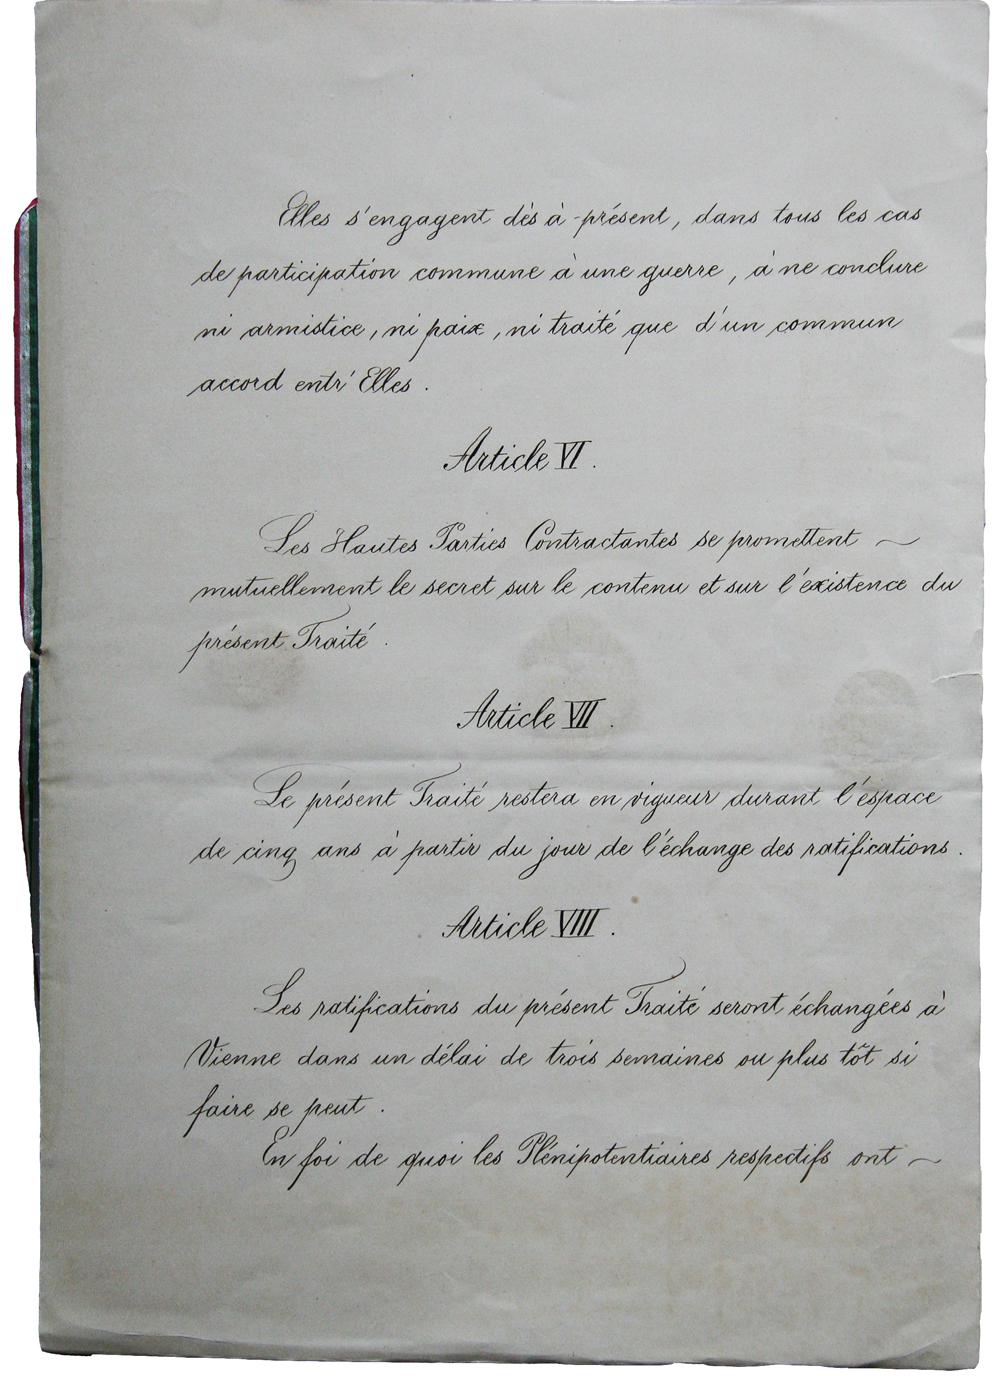 Elles s'engagent dès à-présent, dans tous les cas
de participation commune à une guerre, à ne conclure
ni armistice, ni paix, ni traité que d'un commun
accord entr'Elles.
Article VI.
Les Hautes Parties Contractantes se promettent ~
mutuellement le secret sur le contenu et sur l'éxistence du
présent Traité.
Article VII.
Le présent Traité restera en vigueur durant l'éspace
de cinq ans à partir du jour de l'échange des ratifications.
Article VIII.
Les ratifications du présent Traité seront échangées à
Vienne dans un délai de trois semaines ou plus tôt si
faire se peut.
En foi de quoi les Plénipotentiaires respectifs ont ~